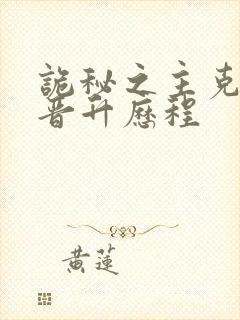 詭秘之主克
晉升歷程
黃蓮